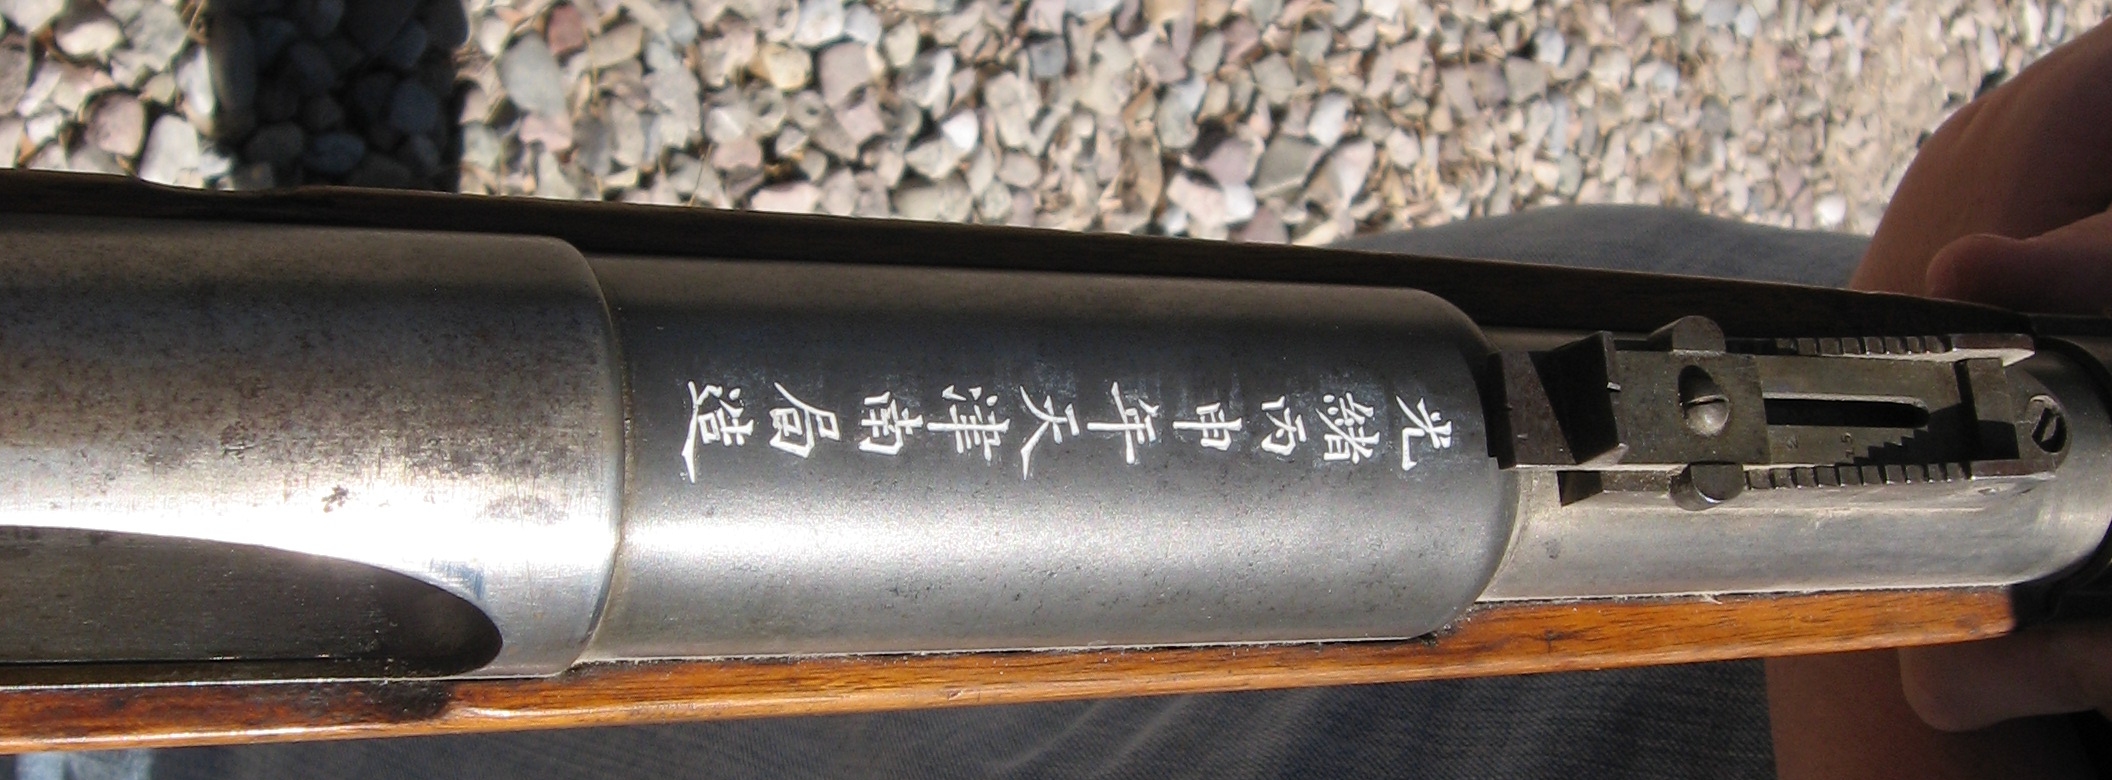 光緒丙申年天津南局造